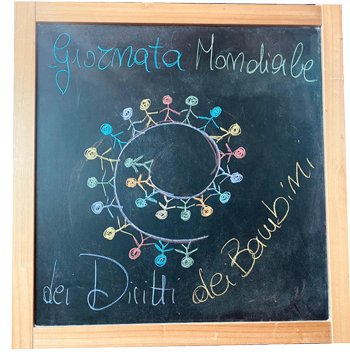 Giornata Mondiale
dei Diritti dei Bambini